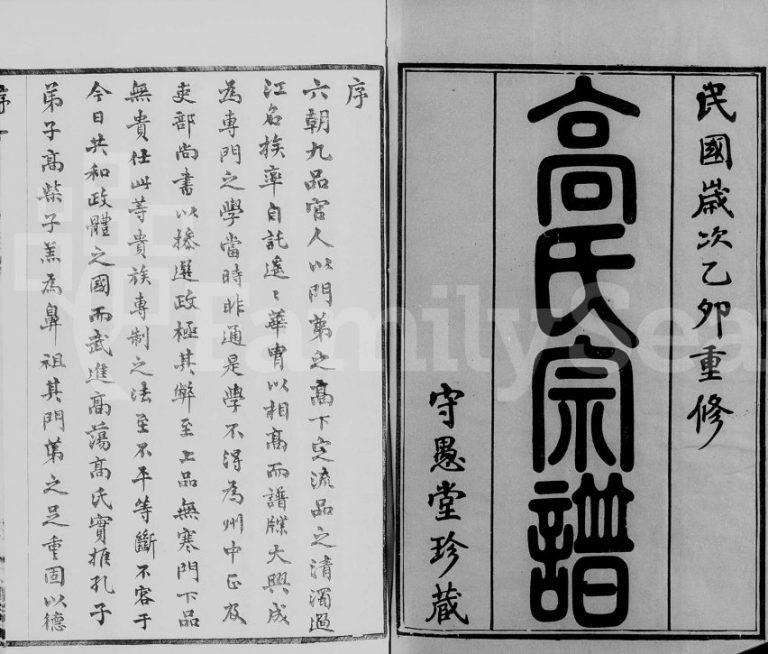 民國歲次乙卯重修
高氏宗譜
守愚堂珍藏
序
六朝九品官人以門第之高下定流品之清濁過
江名族率自託遙遙華胄以相高而譜牒大興成
為專門之學當時非通是學不得為州中正及
吏部尚書以掺選政極其弊至上品無寒門下品
無貴仕此等貴族專制之法至不平等斷不容于
今日共和政體之國而武進高蕩高氏實推孔子
弟子高柴子羔為鼻祖其門第之足重固以德
序 一
FamilySear